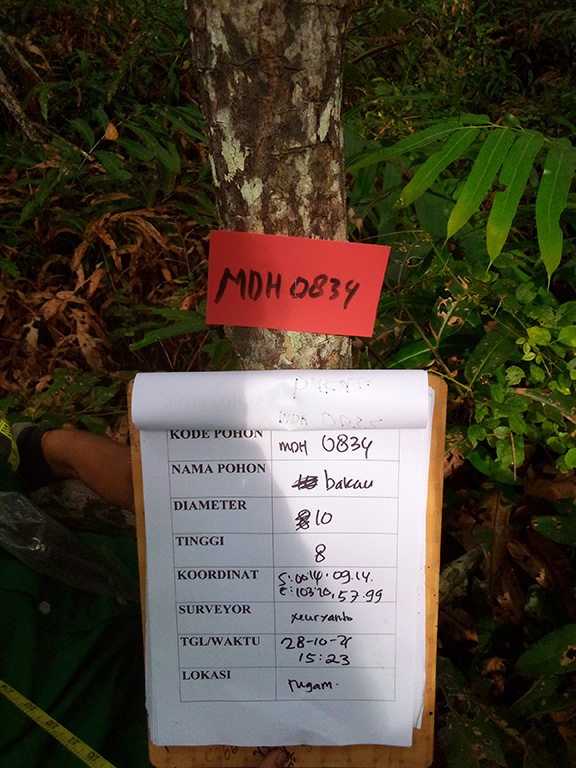 MDH 0834
KODE POHON MDH 0834
NAMA POHON bakau
DIAMETER 10
TINGGI 8
KOORDINAT S:0014.09.14.
E:10320.57.99
SURVEYOR
TGL/WAKTU 28-10-21
15:23
LOKASI